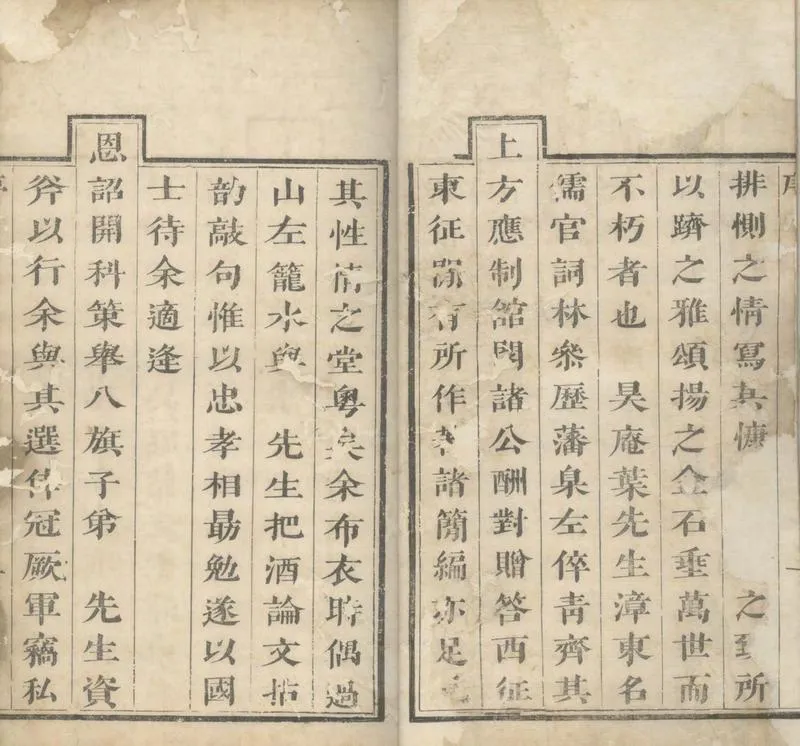 序
排惻之情寫其慷 之 所
以躋之雅頌揚之金石垂萬世而
不朽者也 昊庵葉先生漳東名
儒官詞林叅歷藩臬左倅青齊其
上方應制舘閣諸公酬對贈答西征
東征 有所作 諸簡編亦足
其性情之堂粤 余布衣時偶過
山左籠水與 先生把酒論文拈
韵敲句惟以忠孝相勗勉遂以國
士待余適逢
恩詔開科策舉八旗子弟 先生資
斧以行余與其選 冠厥軍竊私